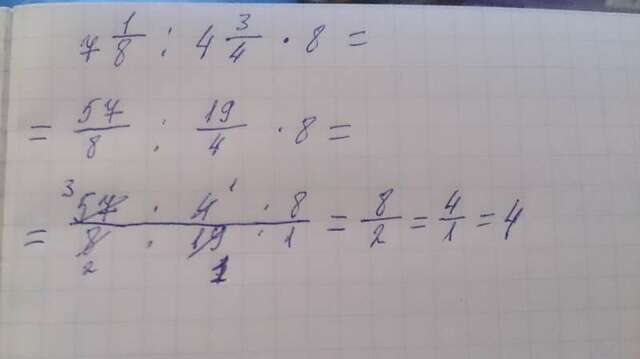 7 1/8 : 4 3/4 · 8 =
= 57/8 : 19/4 · 8 =
= 3 57 · 4 1 · 8 / 8 2 · 19 1 · 1 = 8/2 = 4/1 = 4